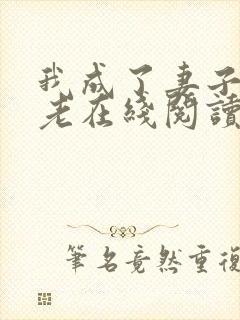 我成了妻子
老在綫閱讀
筆名竟然重複